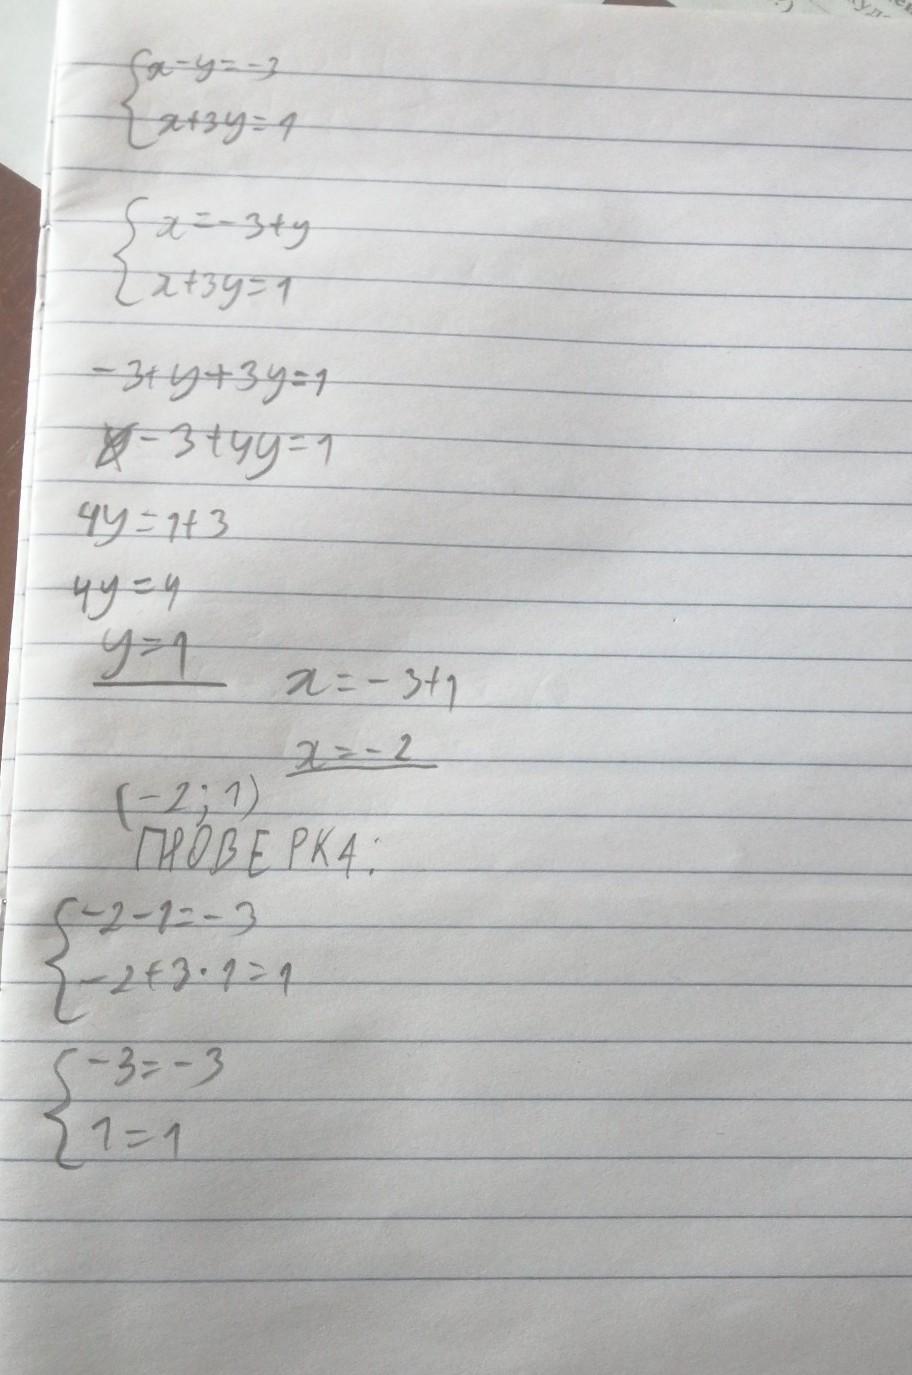 x-y=-3
x+3y=1
x=-3+y
x+3y=1
-3+y+3y=1
-3+4y=1
4y=1+3
4y=4
y=1
x=-3+1
x=-2
(-2;1)
ПРОВЕРКА:
-2-1=-3
-2+3·1=1
-3=-3
1=1